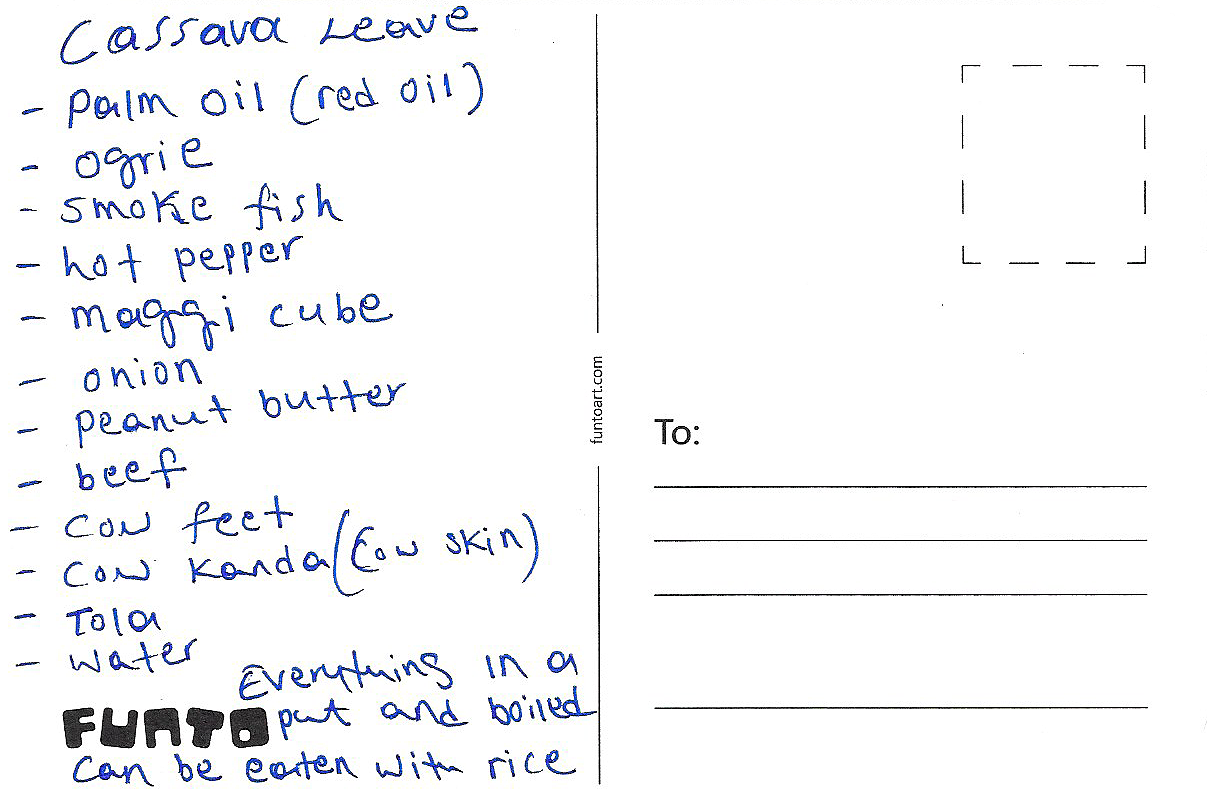 Cassava Leave
- Palm oil (red oil)
- ogrie
- smoke fish
- hot pepper
- maggi cube
- onion
- peanut butter
- beef
- cow feet
- cow kanda (cow skin)
- Tola
- water
Everything in a
FUNTO put and boiled
can be eaten with rice
funtoart.com
To: